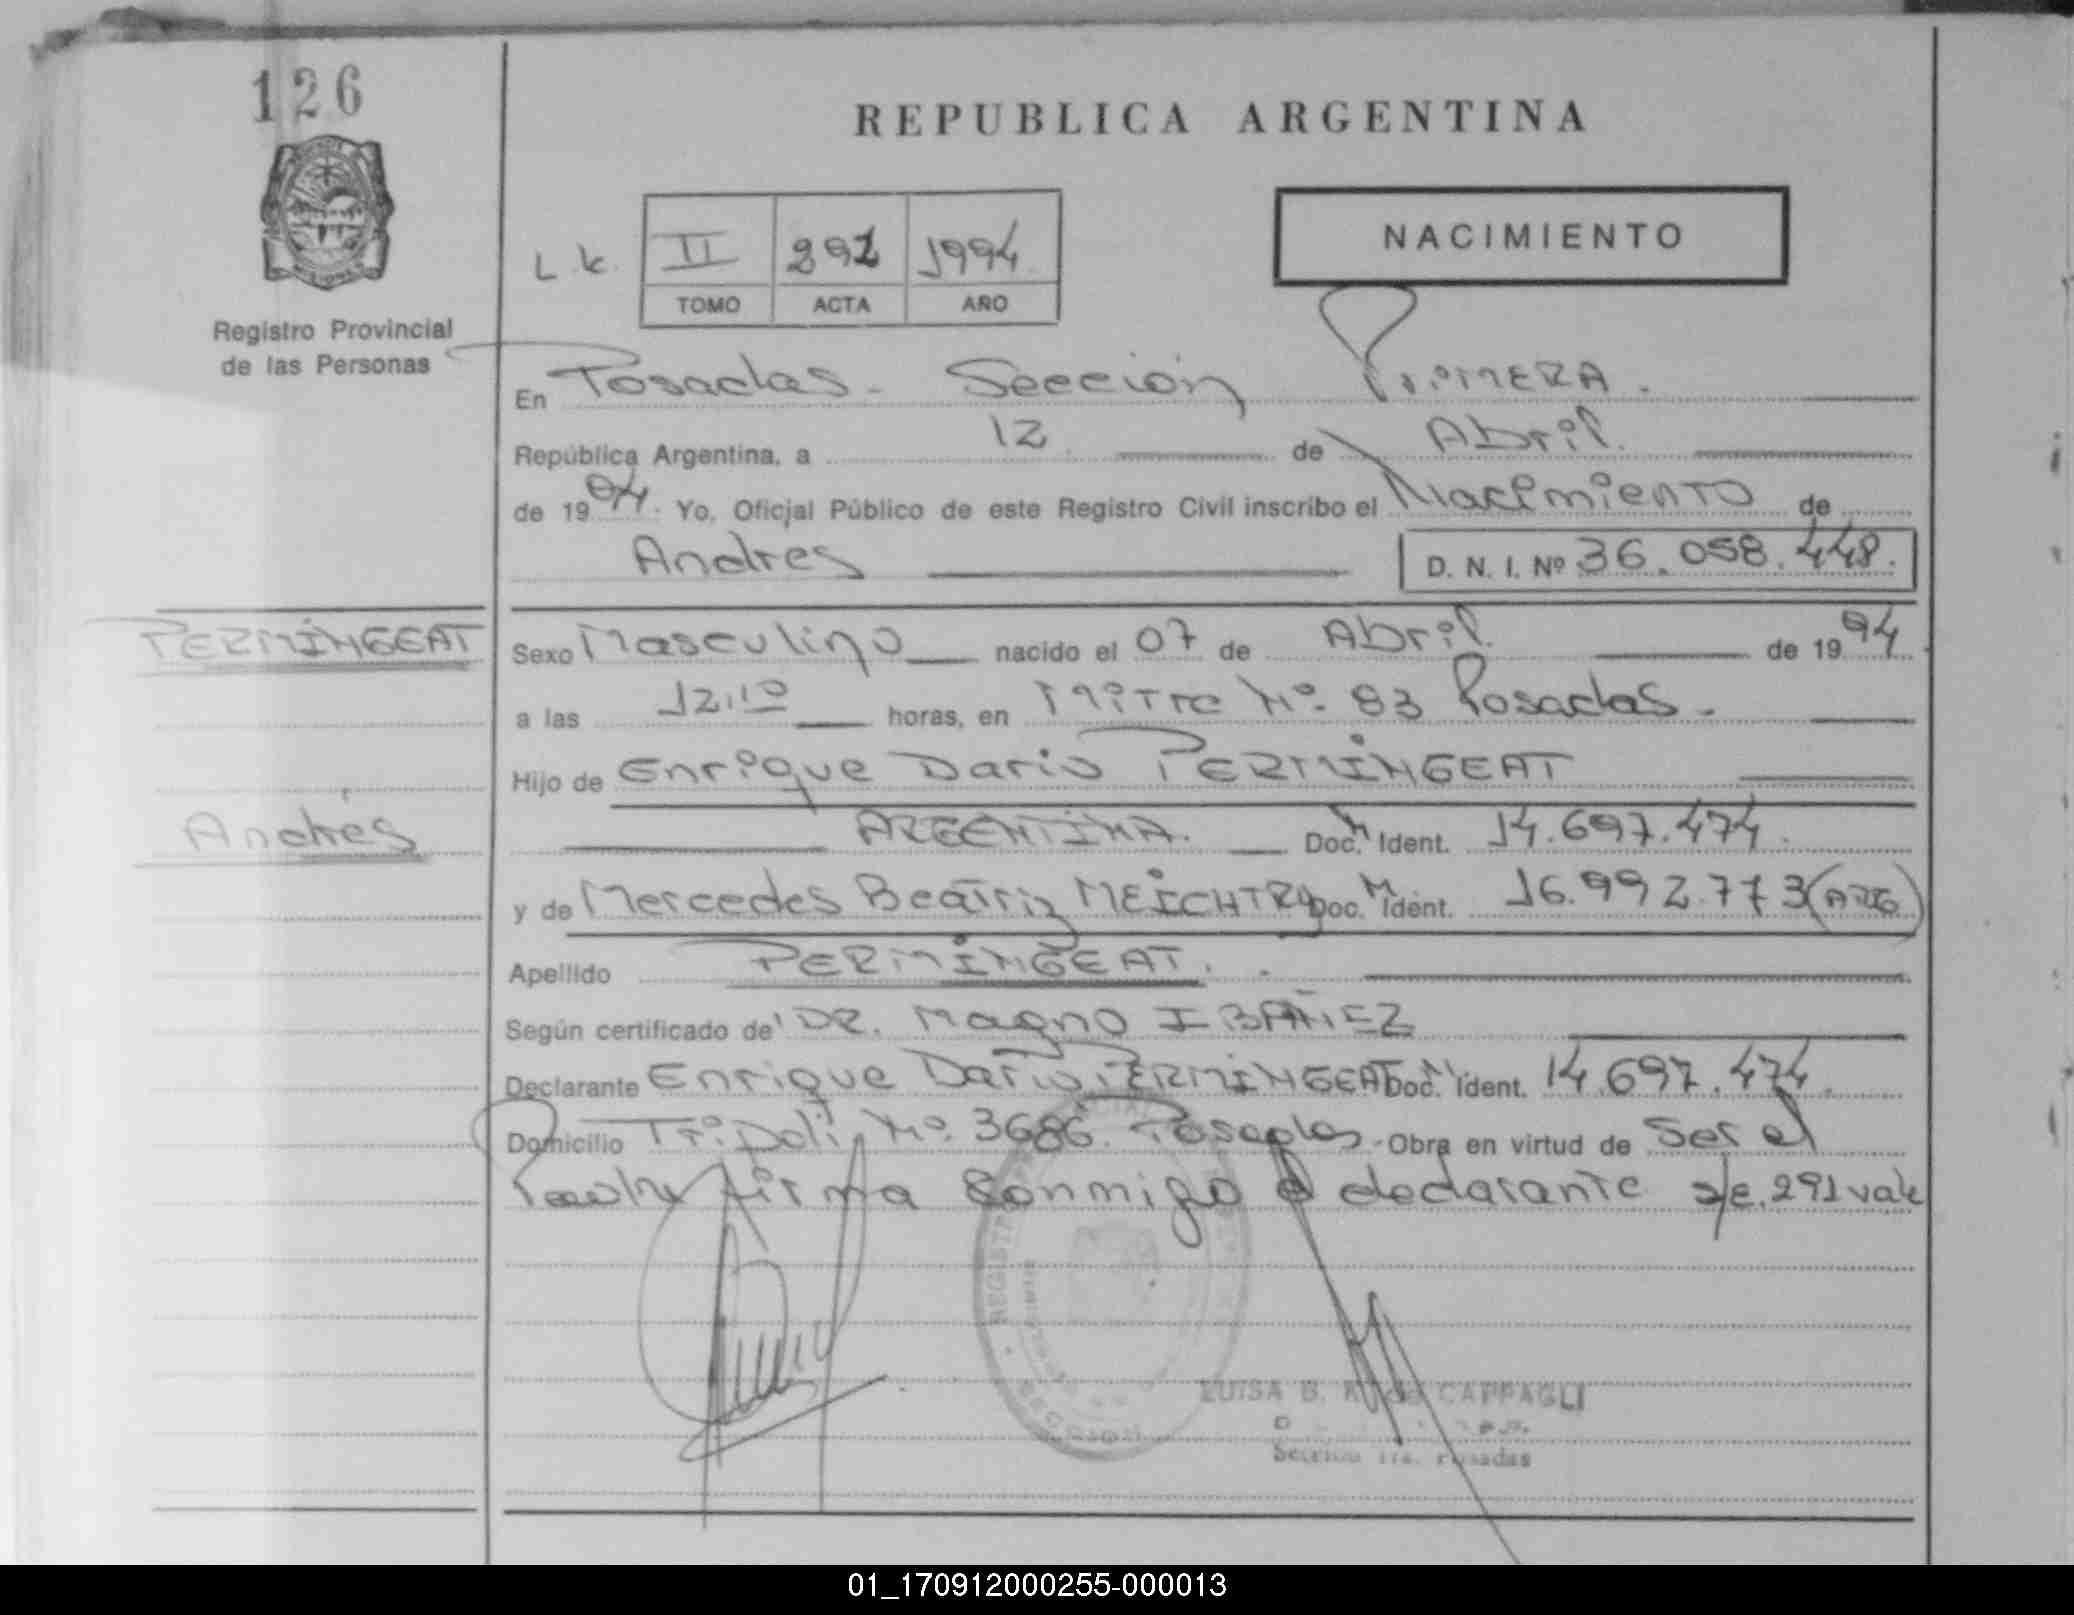 126
REPUBLICA ARGENTINA
NACIMIENTO
L.k. II 291 1994
TOMO ACTA AÑO
Registro Provincial
de las Personas
En Posadas - Sección Primera.
República Argentina, a 12 de Abril
de 1994. Yo, Oficial Público de este Registro Civil inscribo el Nacimiento de
Andres D. N. I. Nº 36.058.448.
PERMINGEAT Sexo Masculino nacido el 07 de Abril de 1994
a las 12,10 horas, en Mitre Nº 83 Posadas.
Hijo de Enrique Dario PERMINGEAT
Andrés ARGENTINA. Doc. Ident. 14.697.474.
y de Mercedes Beatriz MEICHTRY Doc. Ident. 16.992.773 (ARG)
Apellido PERMINGEAT.
Según certificado de DR. Magno IBAÑEZ
Declarante Enrique Dario PERMINGEAT Doc. Ident. 14.697.474.
Domicilio Tripoli Nº 3686. Posadas. Obra en virtud de Ser el
Padre firma conmigo el declarante s/e. 291 vale
LUISA B. de CAPPAGLI
Sección 1ra. Posadas
01_170912000255-000013